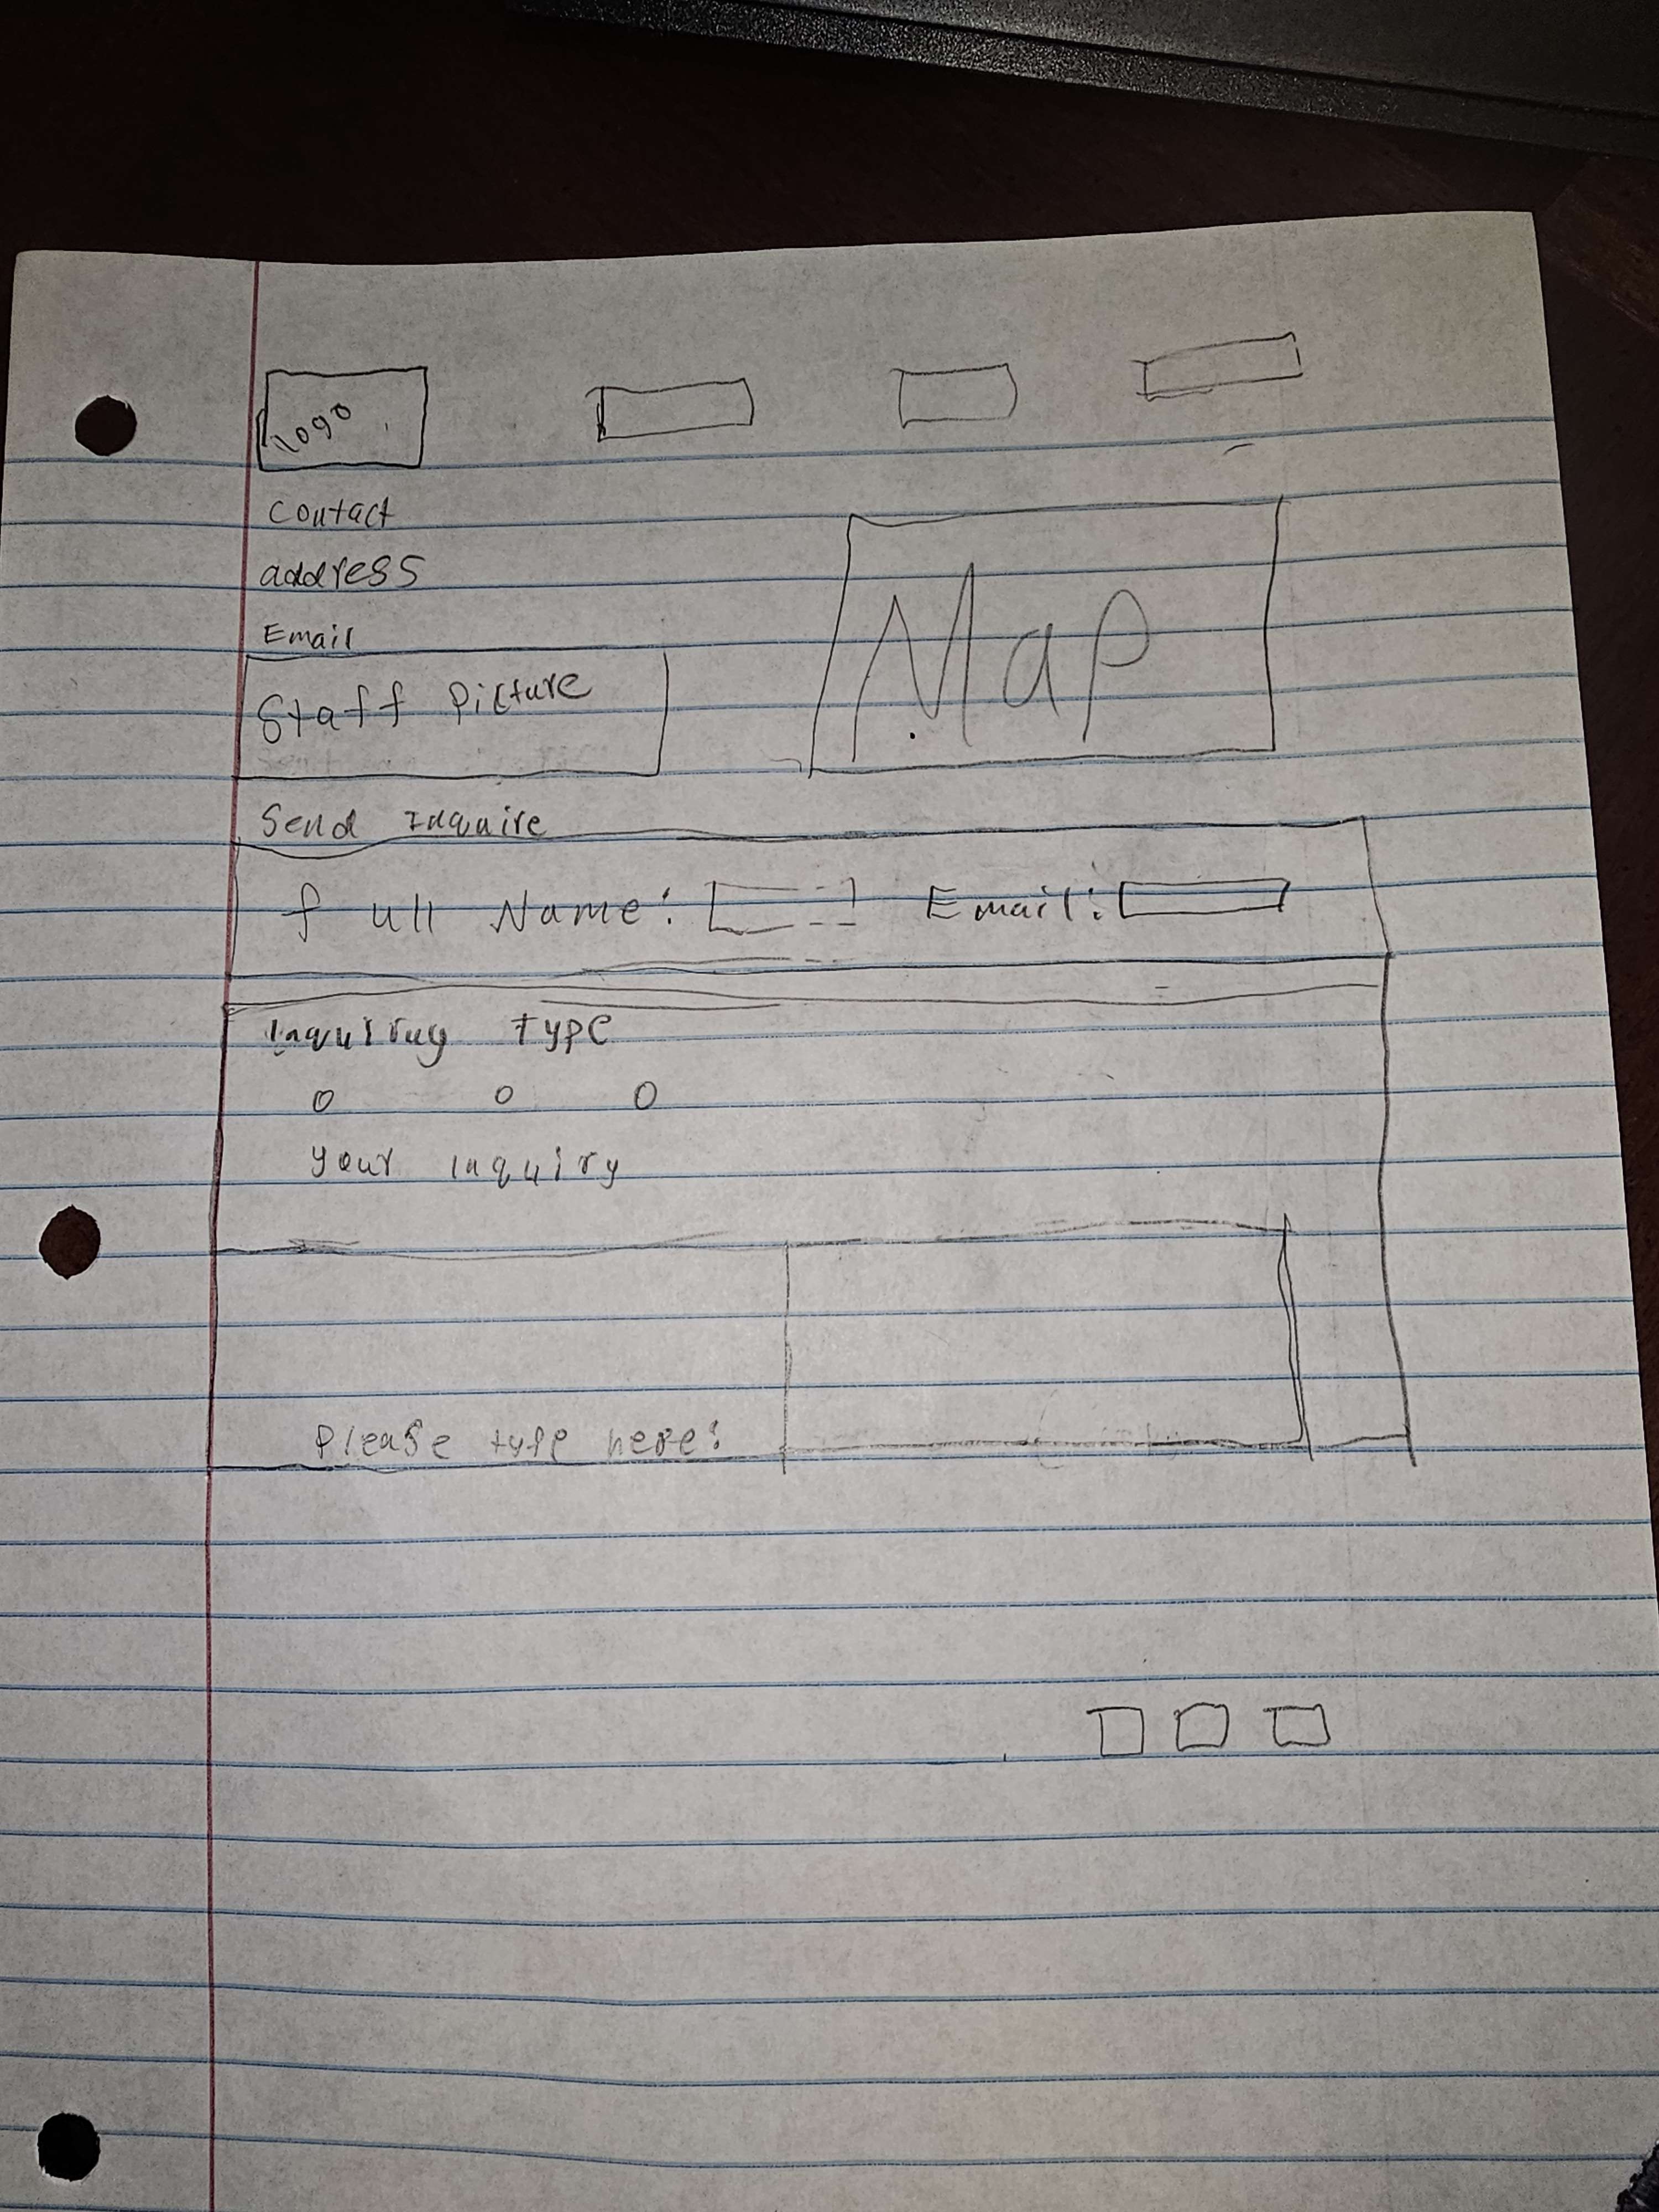 logo
Contact
address
Email
Staff Picture
Map
Send Inquire
full Name: Email:
Inquiruy type
your inquiry
Please type here: